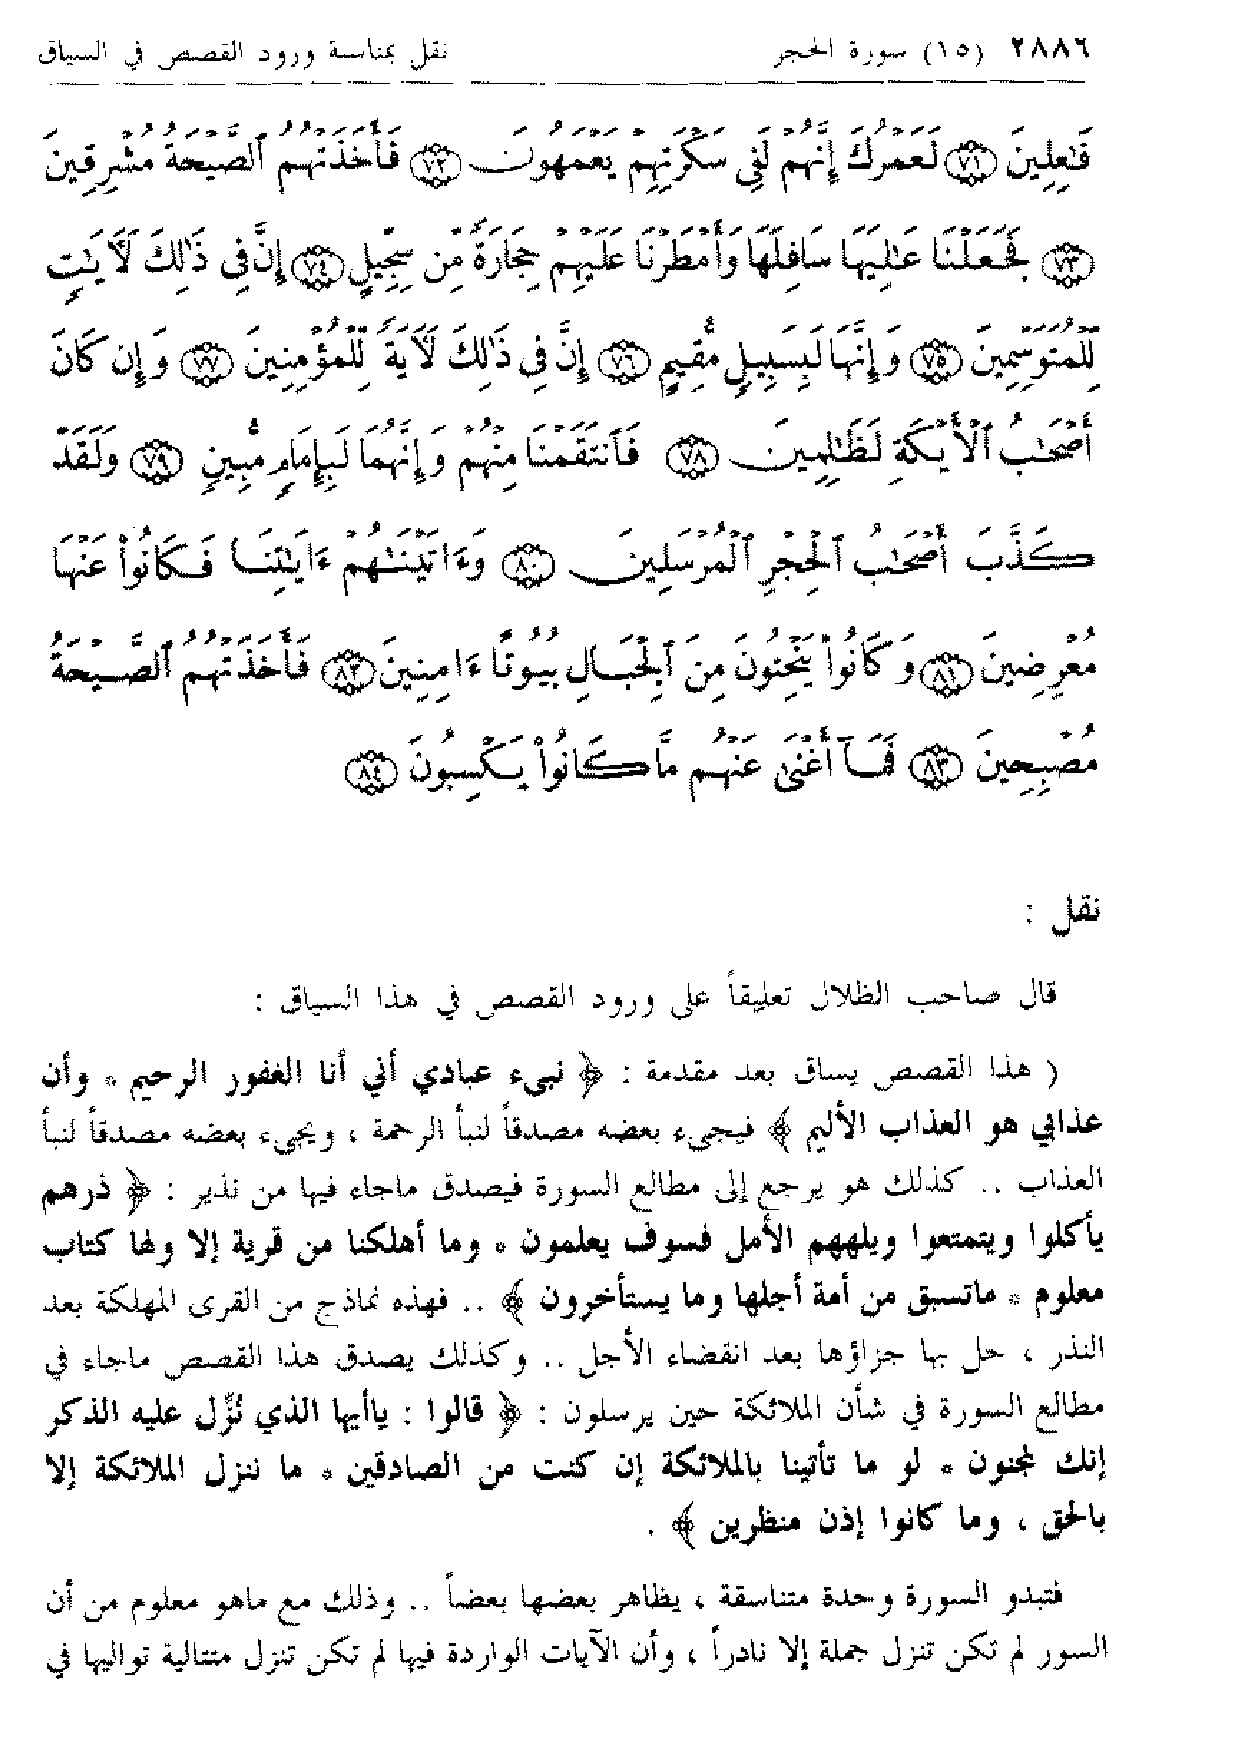 ٢٨٨٦ (١٥) سورة الحجر نقل بمناسبة ورود القصص في السياق
فَٰعِلِينَ ﴿٧١﴾ لَعَمْرُكَ إِنَّهُمْ لَفِي سَكْرَتِهِمْ يَعْمَهُونَ ﴿٧٢﴾ فَأَخَذَتْهُمُ ٱلصَّيْحَةُ مُشْرِقِينَ
﴿٧٣﴾ فَجَعَلْنَا عَٰلِيَهَا سَافِلَهَا وَأَمْطَرْنَا عَلَيْهِمْ حِجَارَةً مِّن سِجِّيلٍ ﴿٧٤﴾ إِنَّ فِي ذَٰلِكَ لَأَيَٰتٍ
لِّلْمُتَوَسِّمِينَ ﴿٧٥﴾ وَإِنَّهَا لَبِسَبِيلٍ مُّقِيمٍ ﴿٧٦﴾ إِنَّ فِي ذَٰلِكَ لَأَيَةً لِّلْمُؤْمِنِينَ ﴿٧٧﴾ وَإِن كَانَ
أَصْحَٰبُ ٱلْأَيْكَةِ لَظَٰلِمِينَ ﴿٧٨﴾ فَٱنتَقَمْنَا مِنْهُمْ وَإِنَّهُمَا لَبِإِمَامٍ مُّبِينٍ ﴿٧٩﴾ وَلَقَدْ
كَذَّبَ أَصْحَٰبُ ٱلْحِجْرِ ٱلْمُرْسَلِينَ ﴿٨٠﴾ وَءَاتَيْنَٰهُمْ ءَايَٰتِنَا فَكَانُوا۟ عَنْهَا
مُعْرِضِينَ ﴿٨١﴾ وَكَانُوا۟ يَنْحِتُونَ مِنَ ٱلْجِبَالِ بُيُوتًا ءَامِنِينَ ﴿٨٢﴾ فَأَخَذَتْهُمُ ٱلصَّيْحَةُ
مُصْبِحِينَ ﴿٨٣﴾ فَمَآ أَغْنَىٰ عَنْهُم مَّا كَانُوا۟ يَكْسِبُونَ ﴿٨٤﴾
نقل :
قال صاحب الظلال تعليقاً على ورود القصص في هذا السياق :
( هذا القصص يساق بعد مقدمة : ﴿ نبىء عبادي أني أنا الغفور الرحيم * وأن
عذابي هو العذاب الأليم ﴾ فيجىء بعضه مصدقاً لنبأ الرحمة ، ويجىء بعضه مصدقاً لنبأ
العذاب .. كذلك هو يرجع إلى مطالع السورة فيصدق ماجاء فيها من نذير : ﴿ ذرهم
يأكلوا ويتمتعوا ويلههم الأمل فسوف يعلمون * وما أهلكنا من قرية إلا ولها كتاب
معلوم * ماتسبق من أمة أجلها وما يستأخرون ﴾ .. فهذه نماذج من القرى المهلكة بعد
النذر ، حل بها جزاؤها بعد انقضاء الأجل .. وكذلك يصدق هذا القصص ماجاء في
مطالع السورة في شأن الملائكة حين يرسلون : ﴿ قالوا : ياأيها الذي نُزِّل عليه الذكر
إنك لمجنون * لو ما تأتينا بالملائكة إن كنت من الصادقين * ما ننزل الملائكة إلا
بالحق ، وما كانوا إذن منظرين ﴾ .
فتبدو السورة وحدة متناسقة ، يظاهر بعضها بعضاً .. وذلك مع ماهو معلوم من أن
السور لم تكن تنزل جملة إلا نادراً ، وأن الآيات الواردة فيها لم تكن تنزل متتالية تواليها في